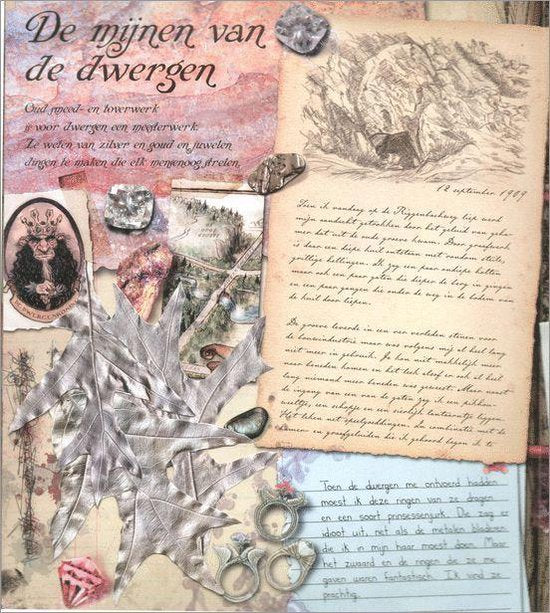 De mijnen van
de dwergen
Oud smeed- en toverwerk
is voor dwergen een meesterwerk.
Ze weten van zilver en goud en juwelen
dingen te maken die elk mensenoog strelen.
12 september 1909
Toen ik vandaag op de liep werd
mijn aandacht getrokken door het geluid van geha-
mer dat uit de oude groeve kwam. Door graafwerk
is daar een diepe kuil ontstaan met rondom steile,
grillige hellingen. Ik zag een paar ondiepe holten
maar ook een paar gaten die dieper de berg in gingen
en een paar gangen die onder de weg in de bodem van
de kuil door liepen.
De groeve leverde in een ver verleden stenen voor
de bouwindustrie maar was volgens mij al heel lang
niet meer in gebruik. Je kon niet makkelijk meer
naar beneden komen en het leek alsof er ook al heel
lang niemand meer beneden was geweest. Maar naast
de ingang van een van de gaten zag ik een pikhou-
weeltje, een schopje en een sierlijk lantaarntje liggen.
Het leken net speelgoeddingen. In combinatie met de
hamer- en graafgeluiden die ik gehoord begon ik te
Toen de dwergen me ontvoerd hadden
moest ik deze ringen van ze dragen
en een soort prinsessenjurk. Die zag er
idioot uit, net als de metalen bladeren
die ik in mijn haar moest doen. Maar
het zwaard en de ringen die ze me
gaven waren fantastisch. Ik vind ze
prachtig.